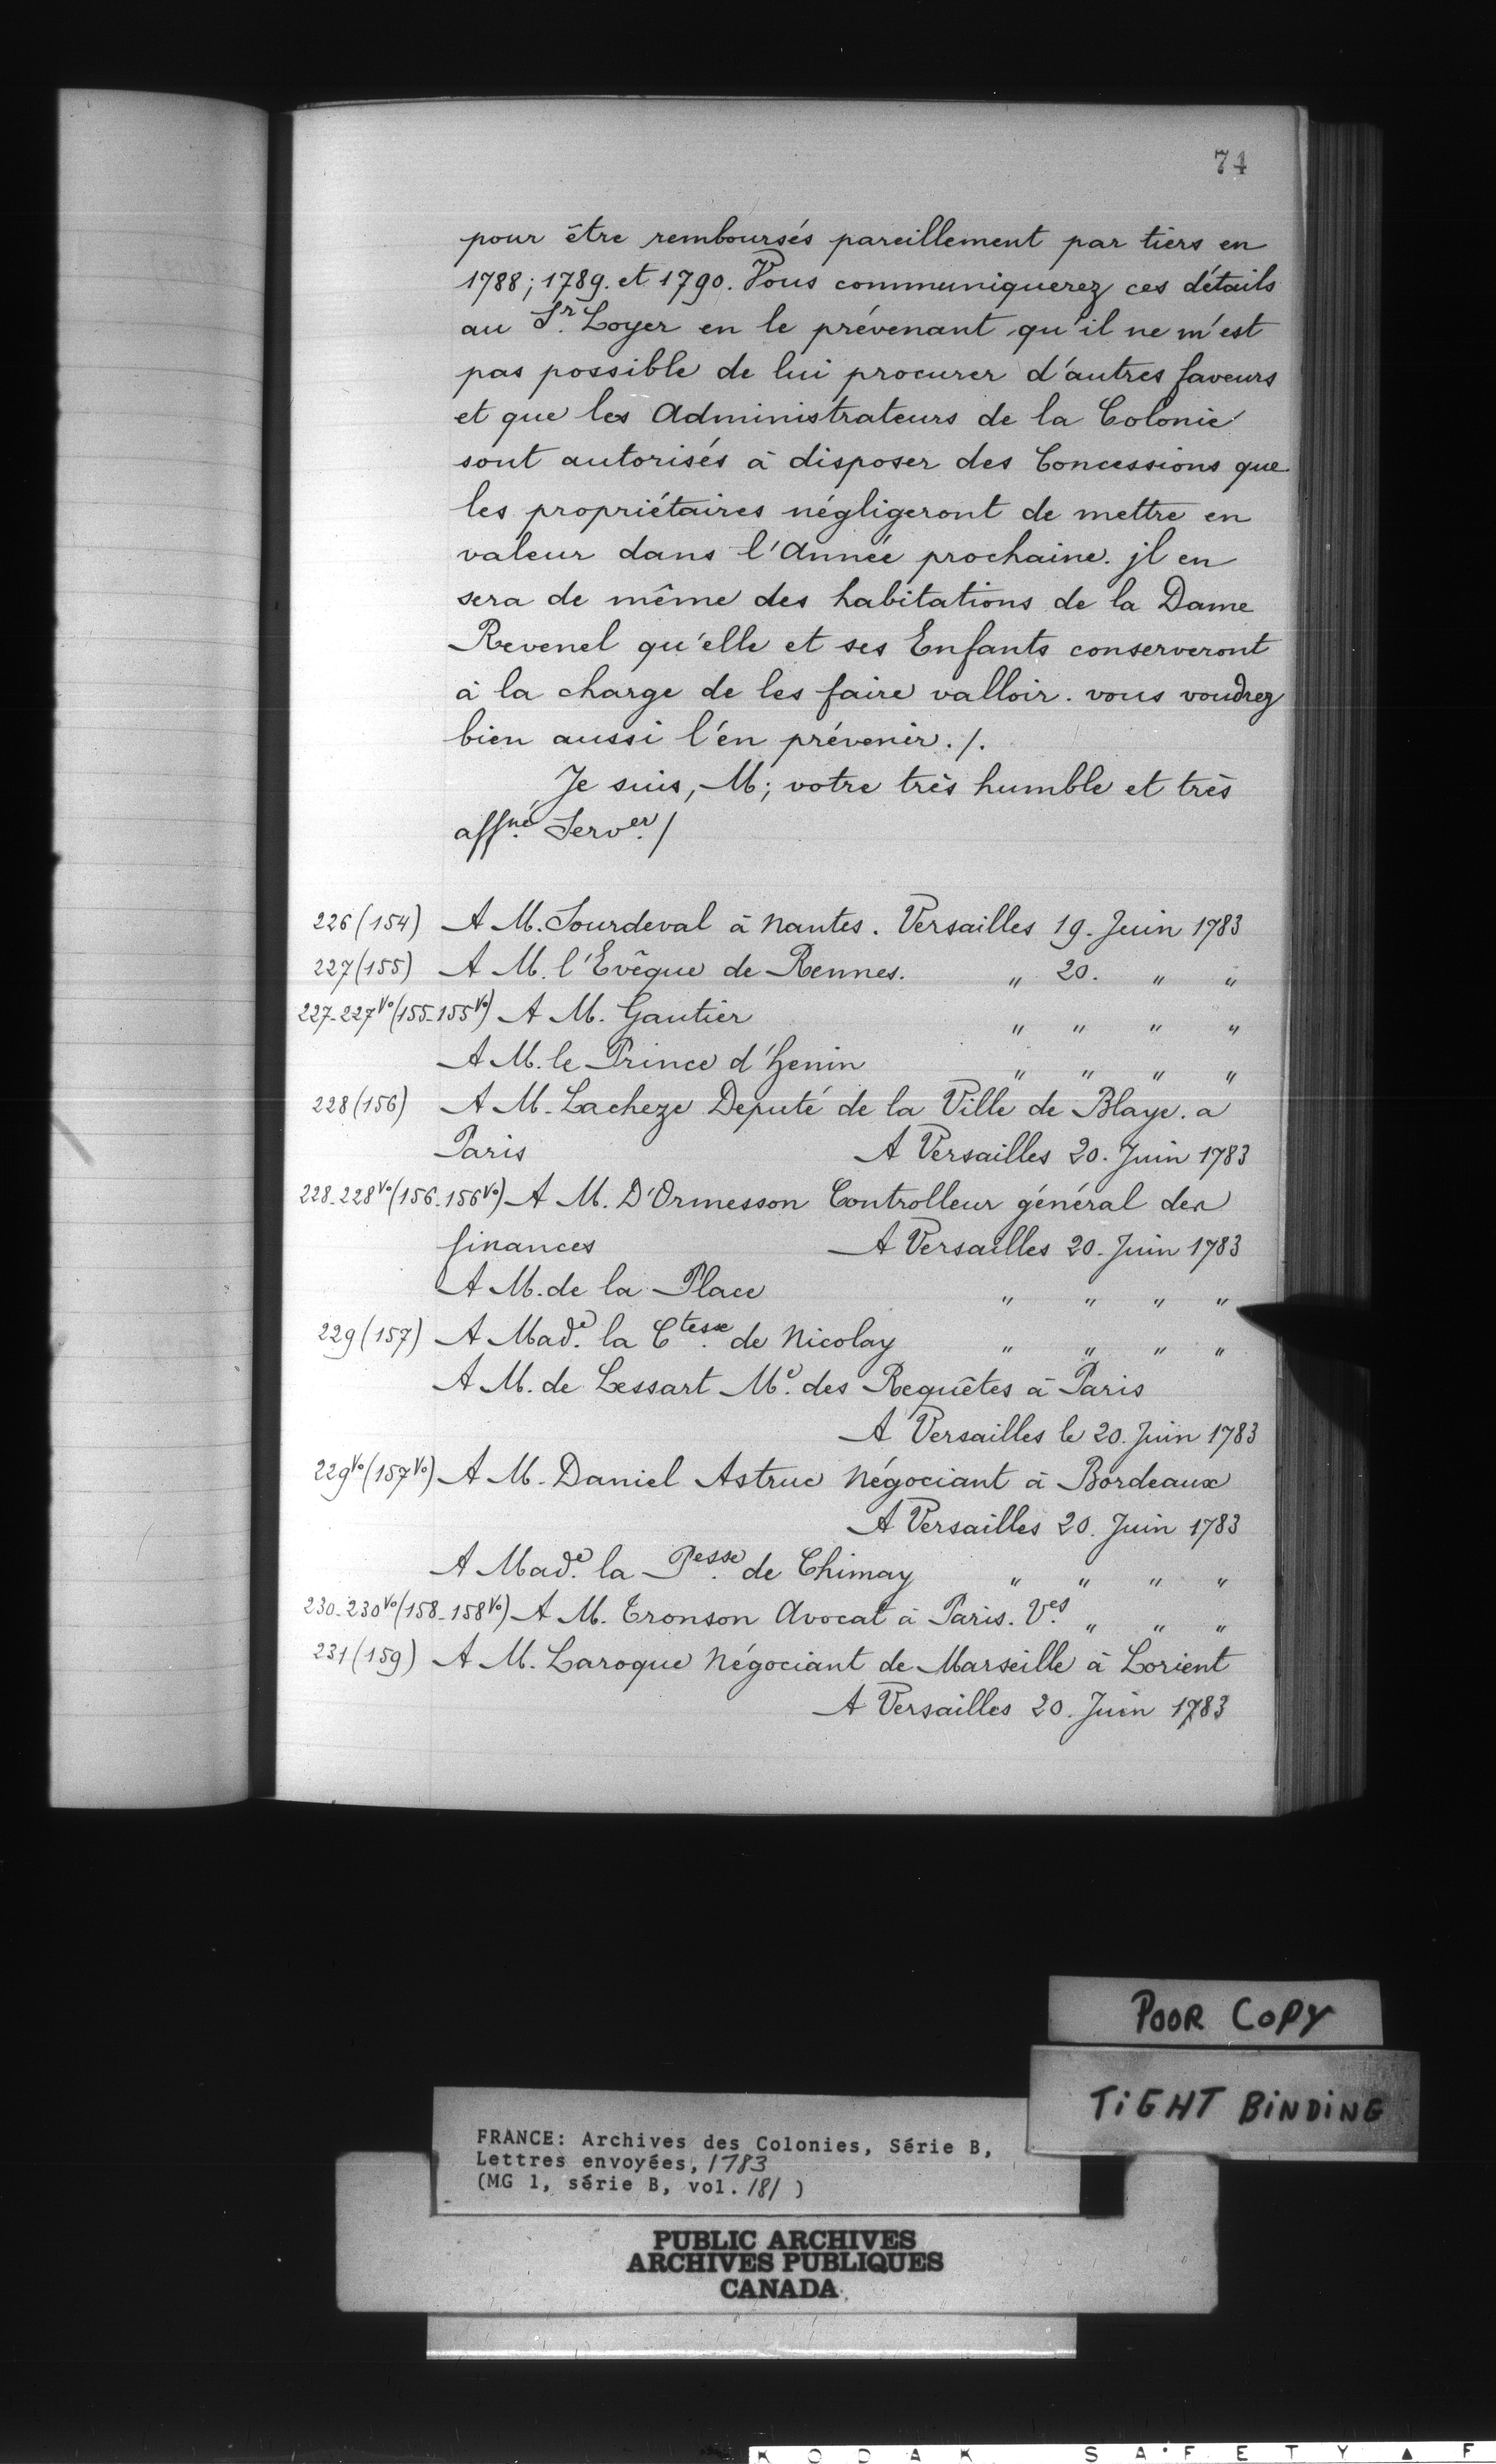 74
pour être remboursés pareillement par tiers en
1788; 1789. et 1790. Vous communiquerez ces détails
au Sr. Loyer en le prévenant qu'il ne m'est
pas possible de lui procurer d'autres faveurs
et que les Administrateurs de la Colonie
sont autorisés à disposer des Concessions que
les propriétaires négligeront de mettre en
valeur dans l'Année prochaine. jl en
sera de même des habitations de la Dame
Revenel qu'elle et ses Enfants conserveront
à la charge de les faire valloir. vous voudrez
bien aussi l'en prévenir./.
Je suis, M; votre très humble et très
affné. Server./
226 (154) A M. Sourdeval à Nantes. Versailles 19. Juin 1783
227 (155) A M. l'Evêque de Rennes. " 20. " "
227-227Vo (155-155Vo) A M. Gautier " " " "
A M. le Prince d'henin " " " "
228 (156) A M. Lacheze Deputé de la Ville de Blaye. a
Paris A Versailles 20. Juin 1783
228-228Vo (156-156Vo) A M. D'Ormesson Controlleur général des
finances A Versailles 20. Juin 1783
A M. de la Place " " " "
229 (157) A Made. la Ctesse. de Nicolay " " " "
A M. de Lessart Me. des Requêtes à Paris
A Versailles le 20. Juin 1783
229Vo (157Vo) A M. Daniel Astruc Négociant à Bordeaux
A Versailles 20. Juin 1783
A Made. la Pesse. de Chimay " " " "
230-230Vo (158-158Vo) A M. Tronson Avocat à Paris. Ves. " " "
231 (159) A M. Laroque Négociant de Marseille à Lorient
A Versailles 20. Juin 1783
POOR COPY
TIGHT BINDING
FRANCE: Archives des Colonies, Série B,
Lettres envoyées, 1783
(MG 1, série B, vol. 181 )
PUBLIC ARCHIVES
ARCHIVES PUBLIQUES
CANADA
KODAK SAFETY F